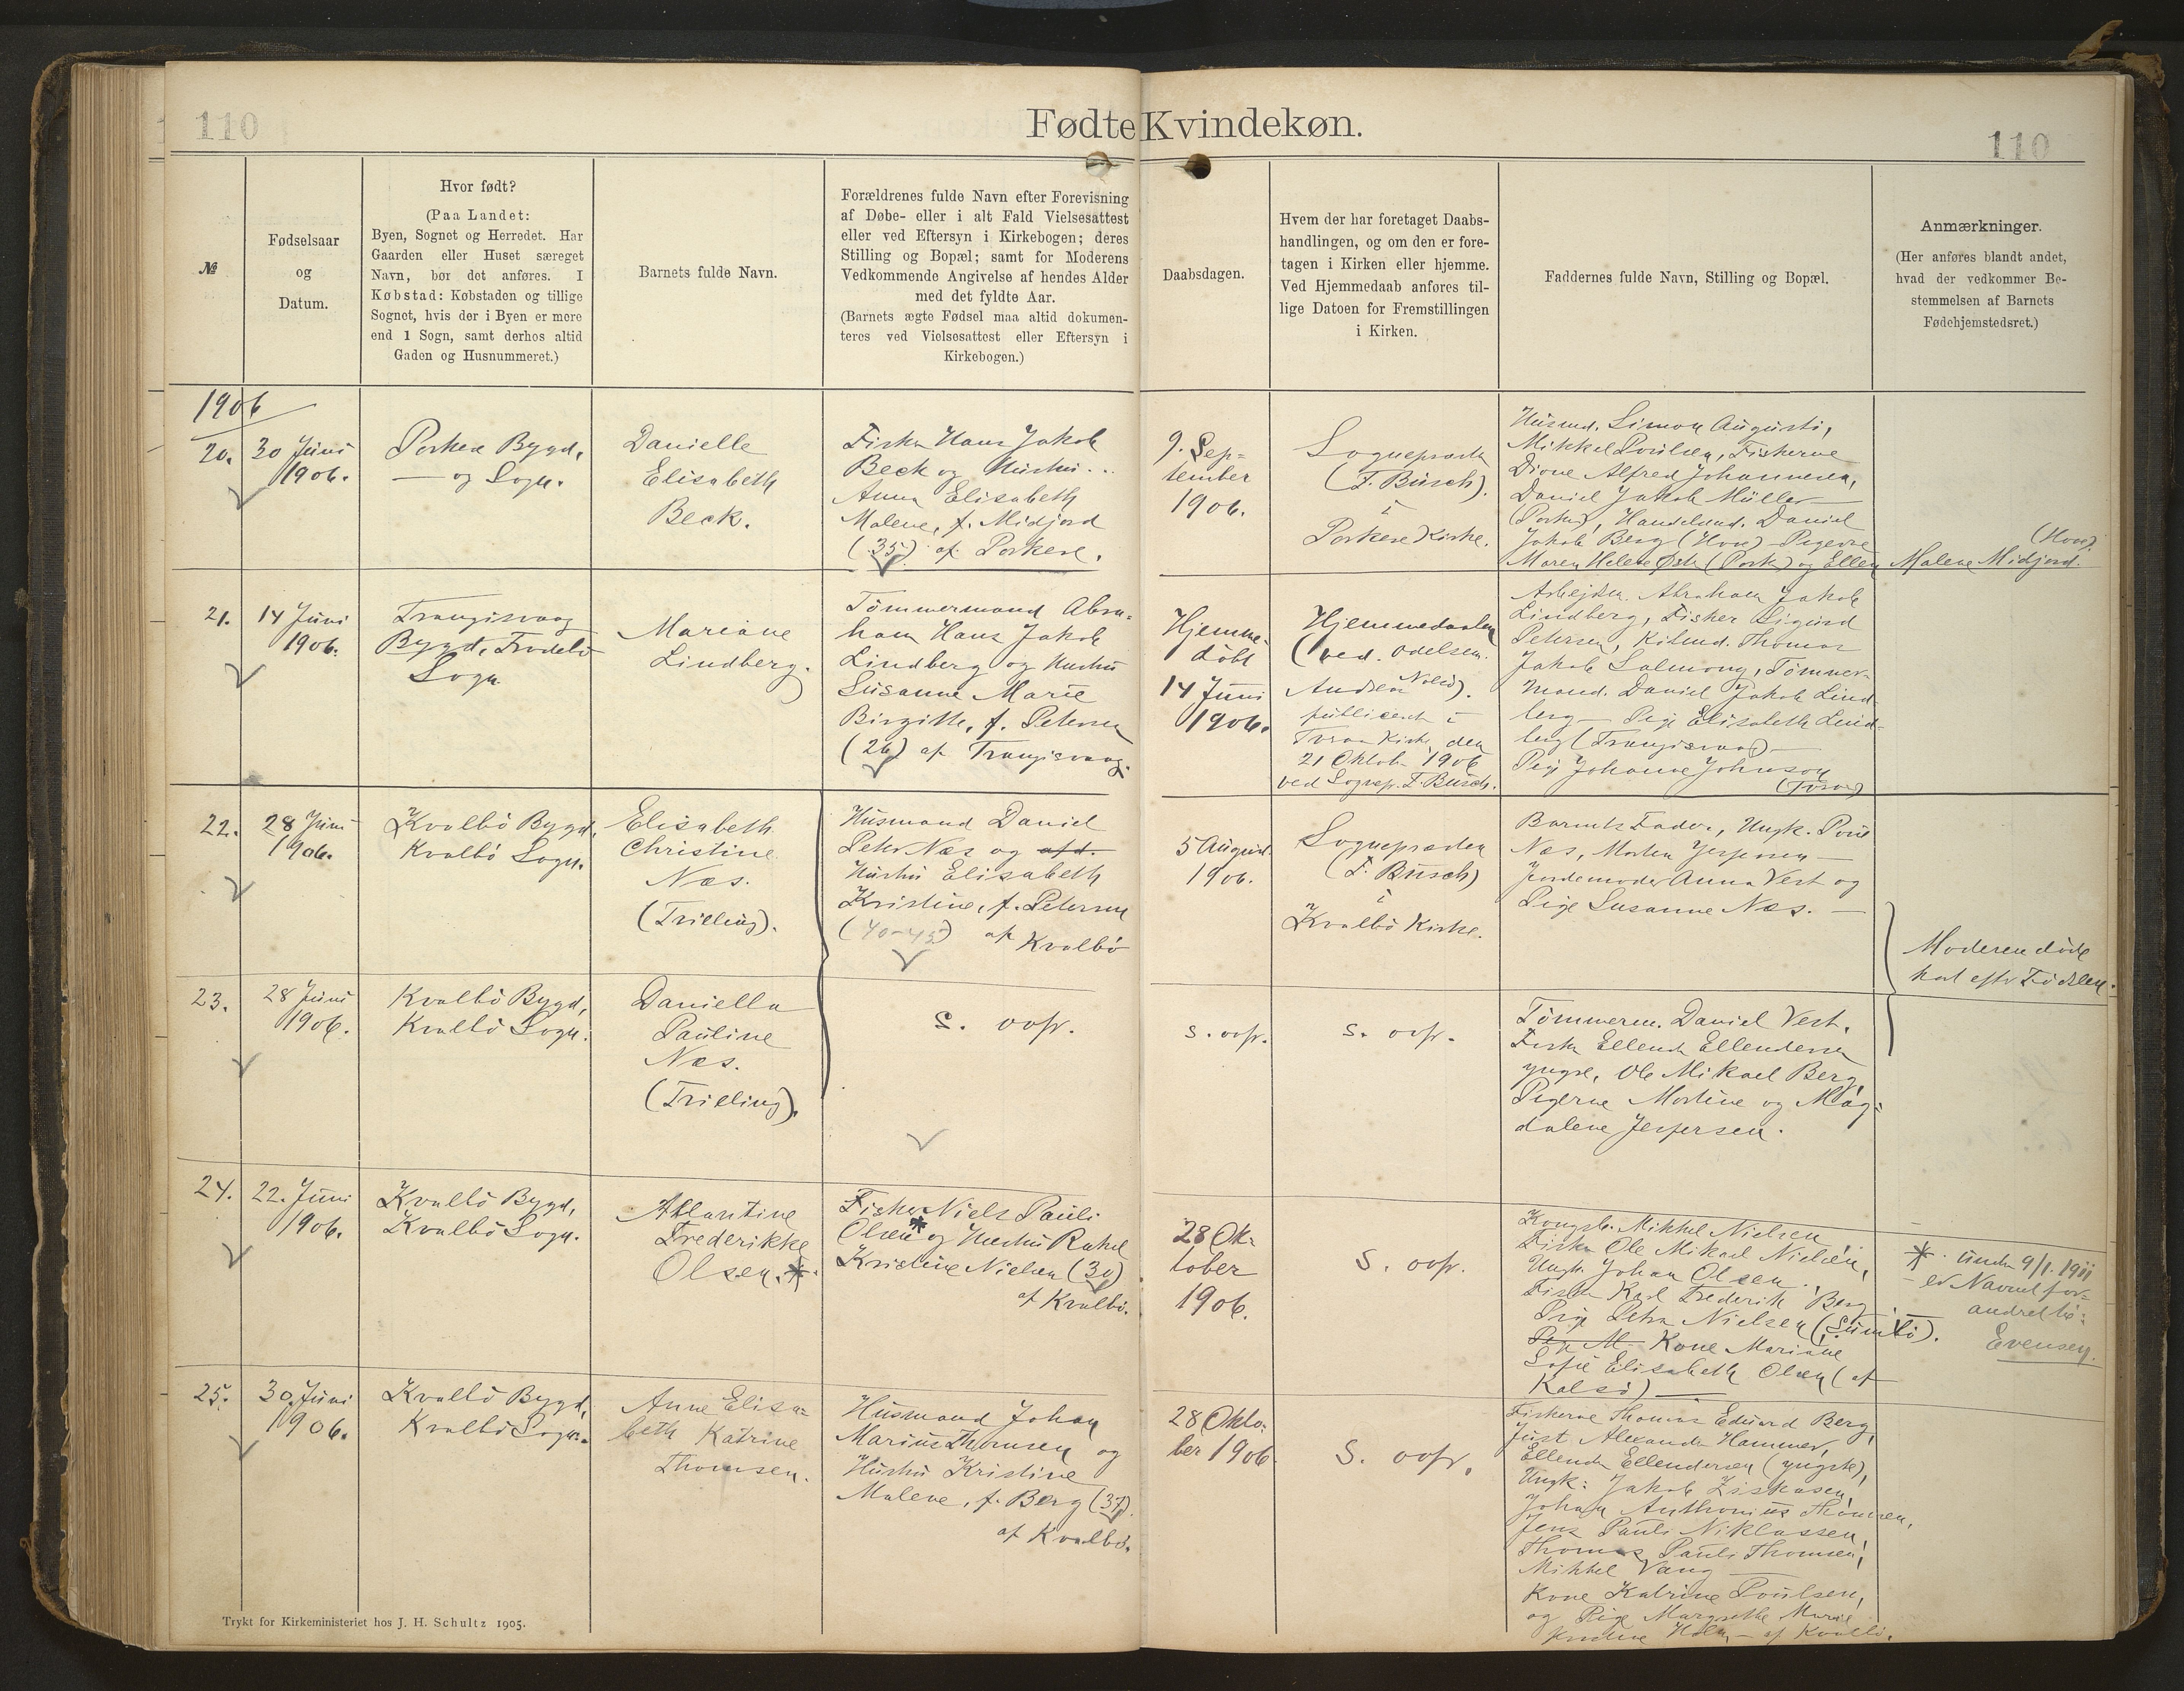 110
Fødte Kvindekøn.
110
№
Fødselsaar
og
Datum.
Hvor født?
(Paa Landet:
Byen, Sognet og Herredet. Har
Gaarden eller Huset særeget
Navn, bør det anføres. I
Købstad: Købstaden og tillige
Sognet, hvis der i Byen er mere
end 1 Sogn, samt derhos altid
Gaden og Husnummeret.)
Barnets fulde Navn.
Forældrenes fulde Navn efter Forevisning
af Døbe- eller i alt Fald Vielsesattest
eller ved Eftersyn i Kirkebogen; deres
Stilling og Bopæl; samt for Moderens
Vedkommende Angivelse af hendes Alder
med det fyldte Aar.
(Barnets ægte Fødsel maa altid dokumen-
teres ved Vielsesattest eller Eftersyn i
Kirkebogen.)
Daabsdagen.
Hvem der har foretaget Daabs-
handlingen, og om den er fore-
tagen i Kirken eller hjemme.
Ved Hjemmedaab anføres til-
lige Datoen for Fremstillingen
i Kirken.
Faddernes fulde Navn, Stilling og Bopæl.
Anmærkninger.
(Her anføres blandt andet,
hvad der vedkommer Be-
stemmelsen af Barnets
Fødehjemstedsret.)
1906
20.
30 Juni
1906.
Porkere Bygd,
— og Sogn.
Danielle
Elisabeth
Beck.
Fisker Hans Jakob
Beck og Hustru
Anna Elisabeth
Malene, f. Midjord
(35) af Porkere.
9. Sep-
tember
1906.
Sognepræsten
(F. Busch).
i
Porkere Kirke.
Husmd. Simon Augusti,
Mikkel Poulsen, Fiskerne
Dione Alfred Johannesen,
Daniel Jakob Müller —
(Porkere), Handelsmd. Daniel
Jakob Berg (Hov) Pigerne
Maren Helene Øster (Pork) og Ellen Malene Midjord.
(Hov).
21.
14 Juni
1906.
Trangisvaag
Bygd, Frodebö
Sogn
Mariane
Lindberg.
Tömmermand Abra-
ham Hans Jakob
Lindberg og Hustru
Susanne Marie
Birgitte, f. Petersen
(26) af Trangisvaag.
Hjemme-
döbt
14 Juni
1906.
Hjemmedaaben
(ved. Odelsm.
Andrea Nolsö).
publiceret i
Tvøraa Kirke, den
21 Oktob 1906
ved Sognep. F. Busch.
Arbejdsm. Abraham Jakob
Lindberg, Fisker Sigurd
Petersen, Kjömd. Thomas
Jakob Salmong, Tömmer-
mand. Daniel Jakob Lind-
berg — Pige Elisabeth Lind-
berg (Trangisvaag) —
Pige Johanne Johnson
(Tvöraa)
22.
28 Juni
1906.
Kvalbö Bygd,
Kvalbö Sogn.
Elisabeth
Christine
Næs.
(Trilling).
Husmand Daniel
Peter Næs og afd.
Hustru Elisabeth
Kristine, f. Petersen
(40-45) af Kvalbö
5 August
1906.
Sognepræsten
(F. Busch)
i
Kvalbö Kirke.
Barnets Fader, Ungk. Poul
Næs, Morten Jespersen —
Jordemoder Anna Vest og
Pige Susanne Næs. —
Moderen döde
kort eftr Födslen.
23.
28 Juni
1906.
Kvalbö Bygd,
Kvalbö Sogn.
Daniella
Pauline
Næs.
(Trilling).
S. ovfr.
s. ovfr.
s. ovfr.
Tömmerm. Daniel Vest,
Fisker Ellend Ellendersen
yngre, Ole Mikael Berg,
Pigerne Mortine og Mag-
dalene Jespersen.
24.
22. Juni
1906.
Kvalbö Bygd,
Kvalbö Sogn.
Atlantine
Frederikke
Olsen.*
Fisker Niels Pauli
Olsen* og Hustru Rakel
Kristine Nielsen (30)
af Kvalbö.
28 Ok-
tober
1906.
S. ovfr.
Kongsb. Mikkel Nielsen,
Fisker Ole Mikael Nielsen,
Ungk. Johan Olsen.
Fisker Karl Frederik Berg
Pige Petra Nielsen (Sumbö).
Pig M. Kone Mariane
Sofie Elisabeth Olsen (af
Kalsö) —
* under 9/1. 1911
er Navnet for-
andret til:
Evensen.
25.
30. Juni
1906.
Kvalbö Bygd,
Kvalbö Sogn.
Anne Elisa-
beth Katrine
Thomsen.
Husmand Johan
Marius Thomsen og
Hustru Kristine
Malene, f. Berg (37)
af Kvalbö.
28 Okto-
ber 1906
S. ovfr.
Fiskerne Thomas Eduard Berg,
Just Alexander Hammer,
Ellend Ellendersen (yngste),
Ungk: Jakob Ziskasen,
Johan Anthonius Thomsen,
Jens Pauli Niklassen,
Thomas Pauli Thomsen,
Mikkel Vang —
Kone Katrine Poulsen,
og Pige Margrethe Marie
Justine Holm — af Kvalbö.
Trykt for Kirkeministeriet hos J. H. Schultz 1905.